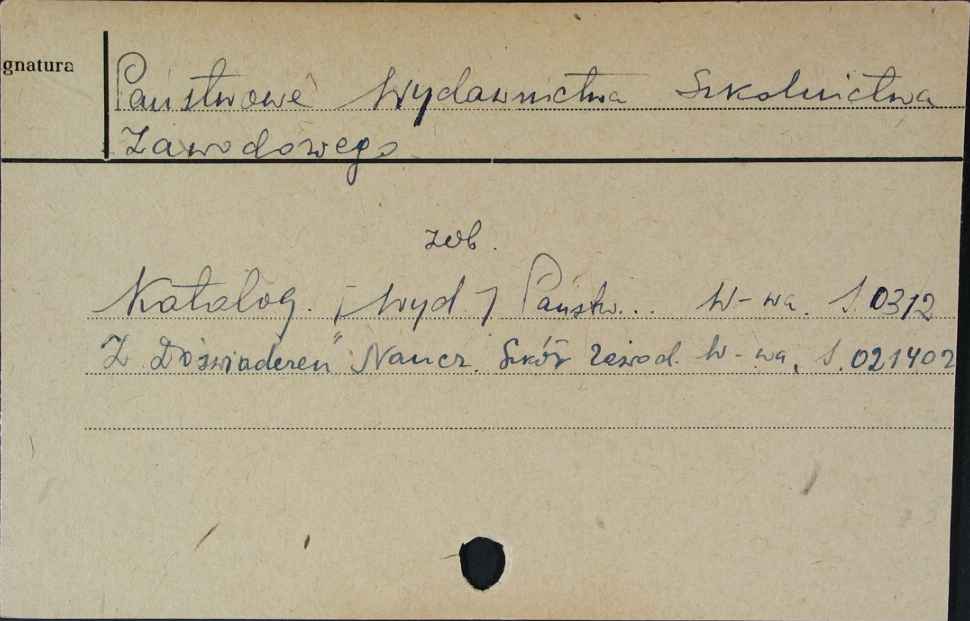 gnatura
Państwowe Wydawnictwa Szkolnictwa
Zawodowego
zob.
Katalog. [Wyd.] Państw... W-wa. S.0312
Z Doświadczeń Naucz. Szkół Zawod. W-wa, S.021402